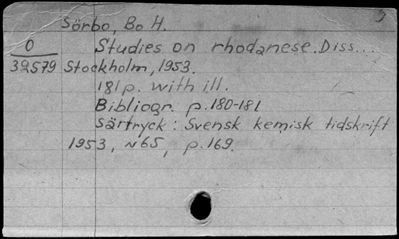 Sörbo, Bo H.
0 Studies on rhodanese. Diss...
39579 Stockholm, 1953.
181 p. with ill.
Bibliogr. p. 180-181
Särtryck: Svensk kemisk tidskrift
1953, N65, p. 169.